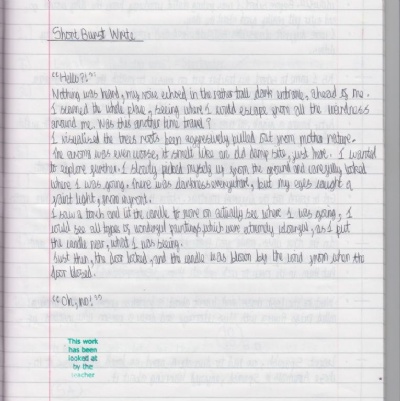 Short Burst Write
"Hello?!"
Nothing was heard, my voice echoed in the rather tall dark entrance, ahead of me.
I scanned the whole place, seeing where I could escape from all the weirdness
around me. Was this another time travel?
I visualised the trees roots been aggressively pulled out from mother nature.
The aroma was even worse, it smelt like an old damp sock, just here. I wanted
to explore further. I slowly picked myself up from the ground and carefully looked
where I was going, there was darkness everywhere, but my eyes caught a
faint light, from upfront.
I saw a torch and lit the candle to more on actually see where I was going, I
could see all types of wonderful paintings which were extremely, as I put
the candle near, what I was seeing.
Just then, the door locked, and the candle was blown by the wind from when the
door closed.
"Oh, no!"
This work
has been
looked at
by the
teacher